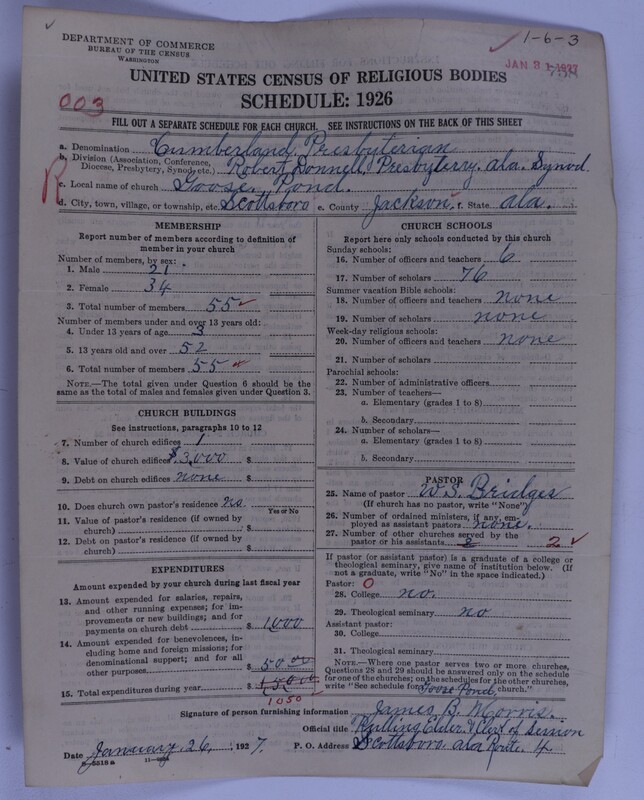 1-6-3
DEPARTMENT OF COMMERCE
BUREAU OF THE CENSUS
WASHINGTON
JAN 31 1927
UNITED STATES CENSUS OF RELIGIOUS BODIES
SCHEDULE: 1926
003
FILL OUT A SEPARATE SCHEDULE FOR EACH CHURCH. SEE INSTRUCTIONS ON THE BACK OF THIS SHEET
a. Denomination Cumberland Presbyterian
b. Division (Association, Conference, Diocese, Presbytery, Synod, etc.) Robert Donnell, Presbyterry. ala. Synod
R
c. Local name of church Goose Pond.
d. City, town, village, or township, etc. Scottsboro e. County Jackson f. State ala.
MEMBERSHIP
Report number of members according to definition of member in your church
Number of members, by sex:
1. Male 21
2. Female 34
3. Total number of members 55
Number of members under and over 13 years old:
4. Under 13 years of age 3
5. 13 years old and over 52
6. Total number of members 55
NOTE.—The total given under Question 6 should be the same as the total of males and females given under Question 3.
CHURCH BUILDINGS
See instructions, paragraphs 10 to 12
7. Number of church edifices 1
8. Value of church edifices $3,000 $
9. Debt on church edifices none $
10. Does church own pastor's residence no.
Yes or No
11. Value of pastor's residence (if owned by church) $
12. Debt on pastor's residence (if owned by church) $
EXPENDITURES
Amount expended by your church during last fiscal year
13. Amount expended for salaries, repairs, and other running expenses; for improvements or new buildings; and for payments on church debt $ 1000
14. Amount expended for benevolences, including home and foreign missions; for denominational support; and for all other purposes $ 50.00
15. Total expenditures during year $
1050
CHURCH SCHOOLS
Report here only schools conducted by this church
Sunday schools:
16. Number of officers and teachers 6
17. Number of scholars 76
Summer vacation Bible schools:
18. Number of officers and teachers none
19. Number of scholars none
Week-day religious schools:
20. Number of officers and teachers none
21. Number of scholars
Parochial schools:
22. Number of administrative officers
23. Number of teachers—
a. Elementary (grades 1 to 8)
b. Secondary
24. Number of scholars—
a. Elementary (grades 1 to 8)
b. Secondary
PASTOR
25. Name of pastor W. S. Bridges
(If church has no pastor, write "None")
26. Number of ordained ministers, if any, employed as assistant pastors none.
27. Number of other churches served by the pastor or his assistants 2 2
If pastor (or assistant pastor) is a graduate of a college or theological seminary, give name of institution below. (If not a graduate, write "No" in the space indicated.)
Pastor: 0
28. College no.
29. Theological seminary no
Assistant pastor:
30. College
31. Theological seminary
NOTE.—Where one pastor serves two or more churches, Questions 28 and 29 should be answered only on the schedule for one of the churches; on the schedules for the other churches, write "See schedule for Goose Pond, church."
Signature of person furnishing information James B. Morris.
Official title Rulling Elder & Clerk of Session
Date January 26, 1927. P. O. Address Scottsboro ala Route. 4